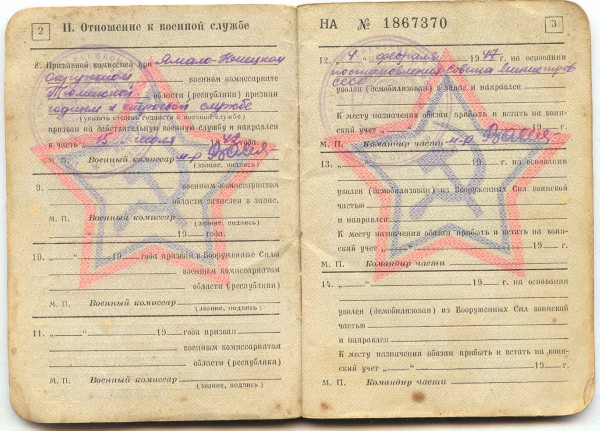 2
II. Отношение к военной службе
8. Призывной комиссией при Ямало-Ненецком
Окружном военном комиссариате
Тюменской области (республики) признан
годным к строевой службе
(указать степень годности к военной службе)
призван на действительную военную службу и направлен
в часть „15“ июля 19 г.
М. П. Военный комиссар м-р
(звание, подпись)
9. военным комиссариатом
области зачислен в запас.
М. П. Военный комиссар
(звание, подпись)
„ “ 19 года.
10. „ “ 19 года призван в Вооруженные Силы
военным комиссариатом
области (республики)
М. П. Военный комиссар
(звание, подпись)
11. „ “ 19 года призван
военным комиссариатом
области (республики)
М. П. Военный комиссар
(звание, подпись)
НА № 1867370
3
12. „4“ февраля 1947 г. на основании
постановления Совета Министров
СССР
уволен (демобилизован) в запас и направлен
К месту назначения обязан прибыть и встать на воин-
ский учет „ “ 19 г.
М. П. Командир части м-р
13. „ “ 19 г. на основании
уволен (демобилизован) из Вооруженных Сил воинской
частью
и направлен
К месту назначения обязан прибыть и встать на воин-
ский учет „ “ 19 г.
М. П. Командир части
14. „ “ 19 г. на основании
уволен (демобилизован) из Вооруженных Сил воинской
частью
и направлен
К месту назначения обязан прибыть и встать на воин-
ский учет „ “ 19 г.
М. П. Командир части